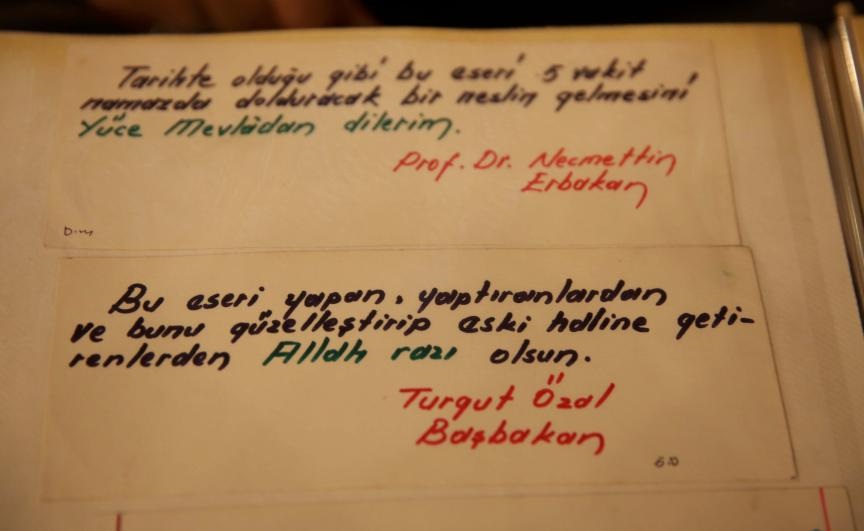 Tarihte olduğu gibi bu eseri 5 vakit
namazda dolduracak bir neslin gelmesini
Yüce Mevlâdan dilerim.
Prof. Dr. Necmettin
Erbakan
Bu eseri yapan, yaptıranlardan
ve bunu güzelleştirip eski haline geti-
renlerden Allah razı olsun.
Turgut Özal
Başbakan